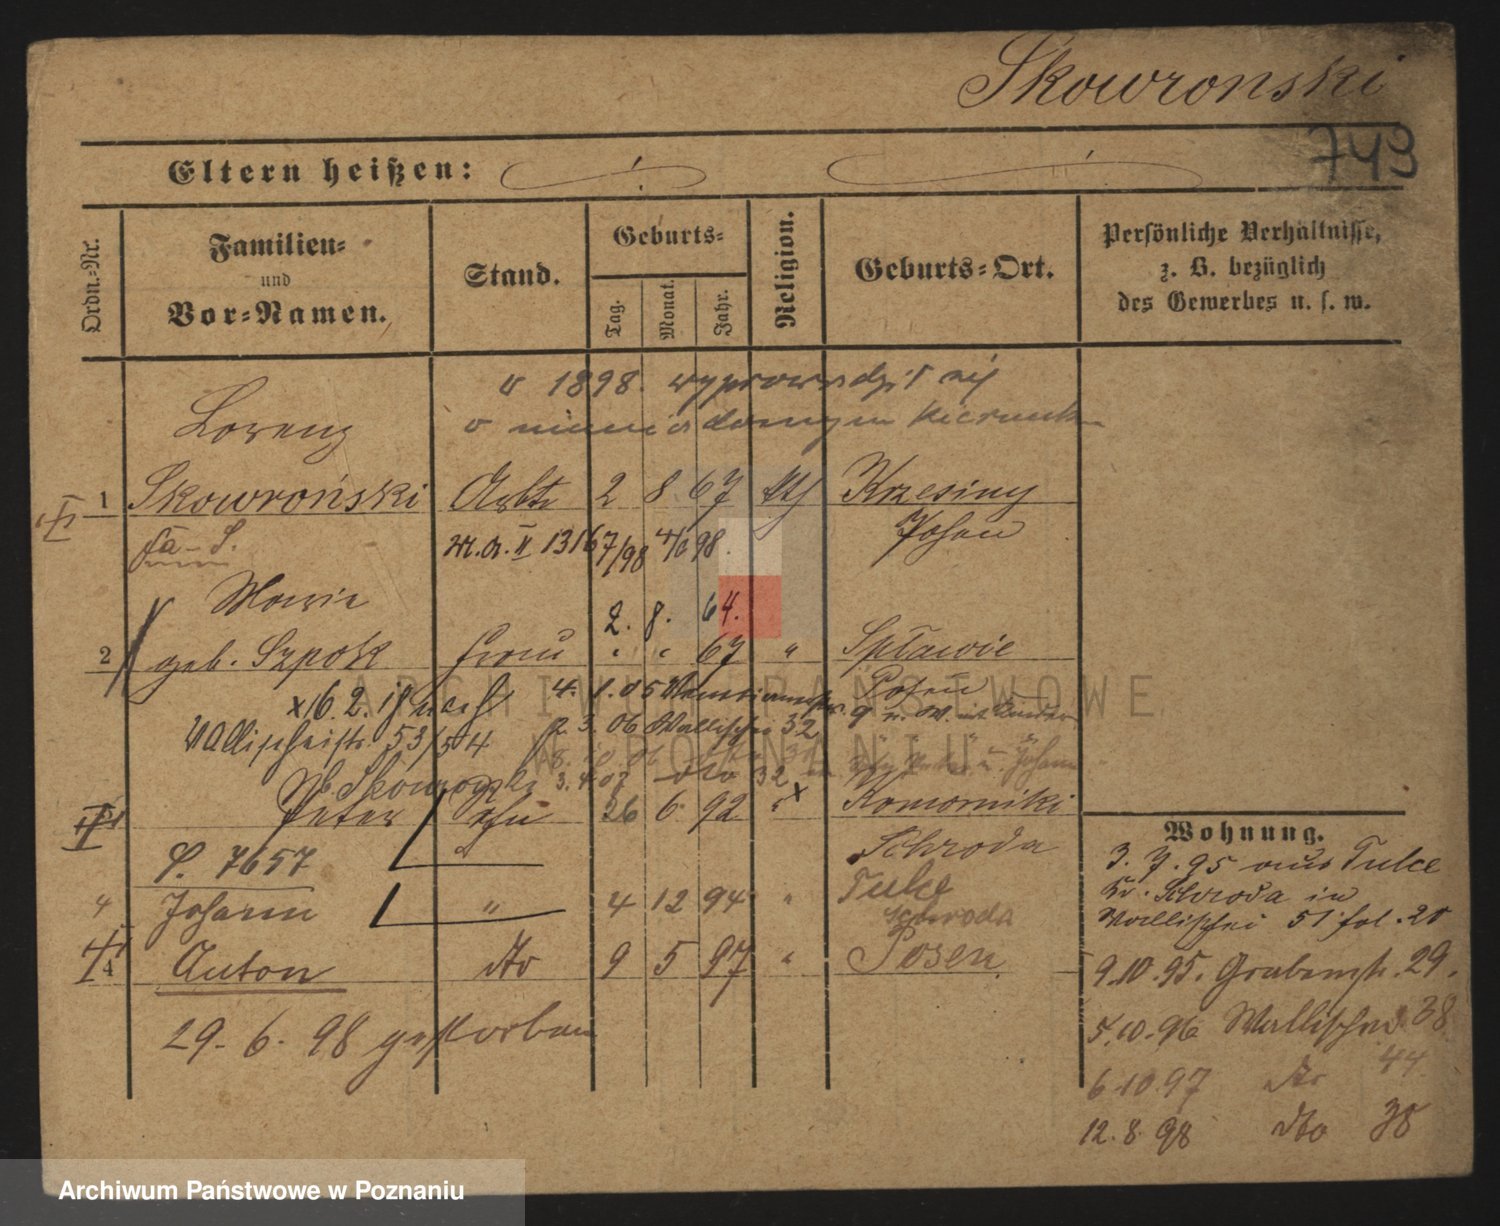 Skowronski
743
Eltern heißen:
Ordn.-Nr.
Familien-
und
Vor-Namen.
Stand.
Geburts-
Tag.
Monat.
Jahr.
Religion.
Geburts-Ort.
Persönliche Verhältnisse,
z. B. bezüglich
des Gewerbes u. s. w.
w 1898. wyprowadził się
w niewiadomym kierunku
Lorenz
1 Skowroński 2 8 67 Kth Krzesiny
Posen
M.A. II 1316 7/98 98.
Marie
2. 8. 64.
2 geb. Szpok Frau " " 67 " Spławie
Posen
x 16. 2. 
4. 05
Wallischeistr. 53/54
2. 3. 06 Wallischei 32
3. 4. 07 dto 32
Peter 26 6 92 " Komorniki
S. 7657
Schroda
" Johann " 4 12 94 " Tulce
Schroda
4 Anton dto 9 5 97 " Posen
29. 6. 98 gestorben
Wohnung.
3. 7. 95 aus Tulce
Kr. Schroda in
Wallischei 51 fol. 28
9.10.95. Grabenstr. 29.
5.10.96 Wallischei 38
6.10.97 dto 44
12. 8. 98 dto 38
ARCHIWUM PAŃSTWOWE
W POZNANIU
Archiwum Państwowe w Poznaniu